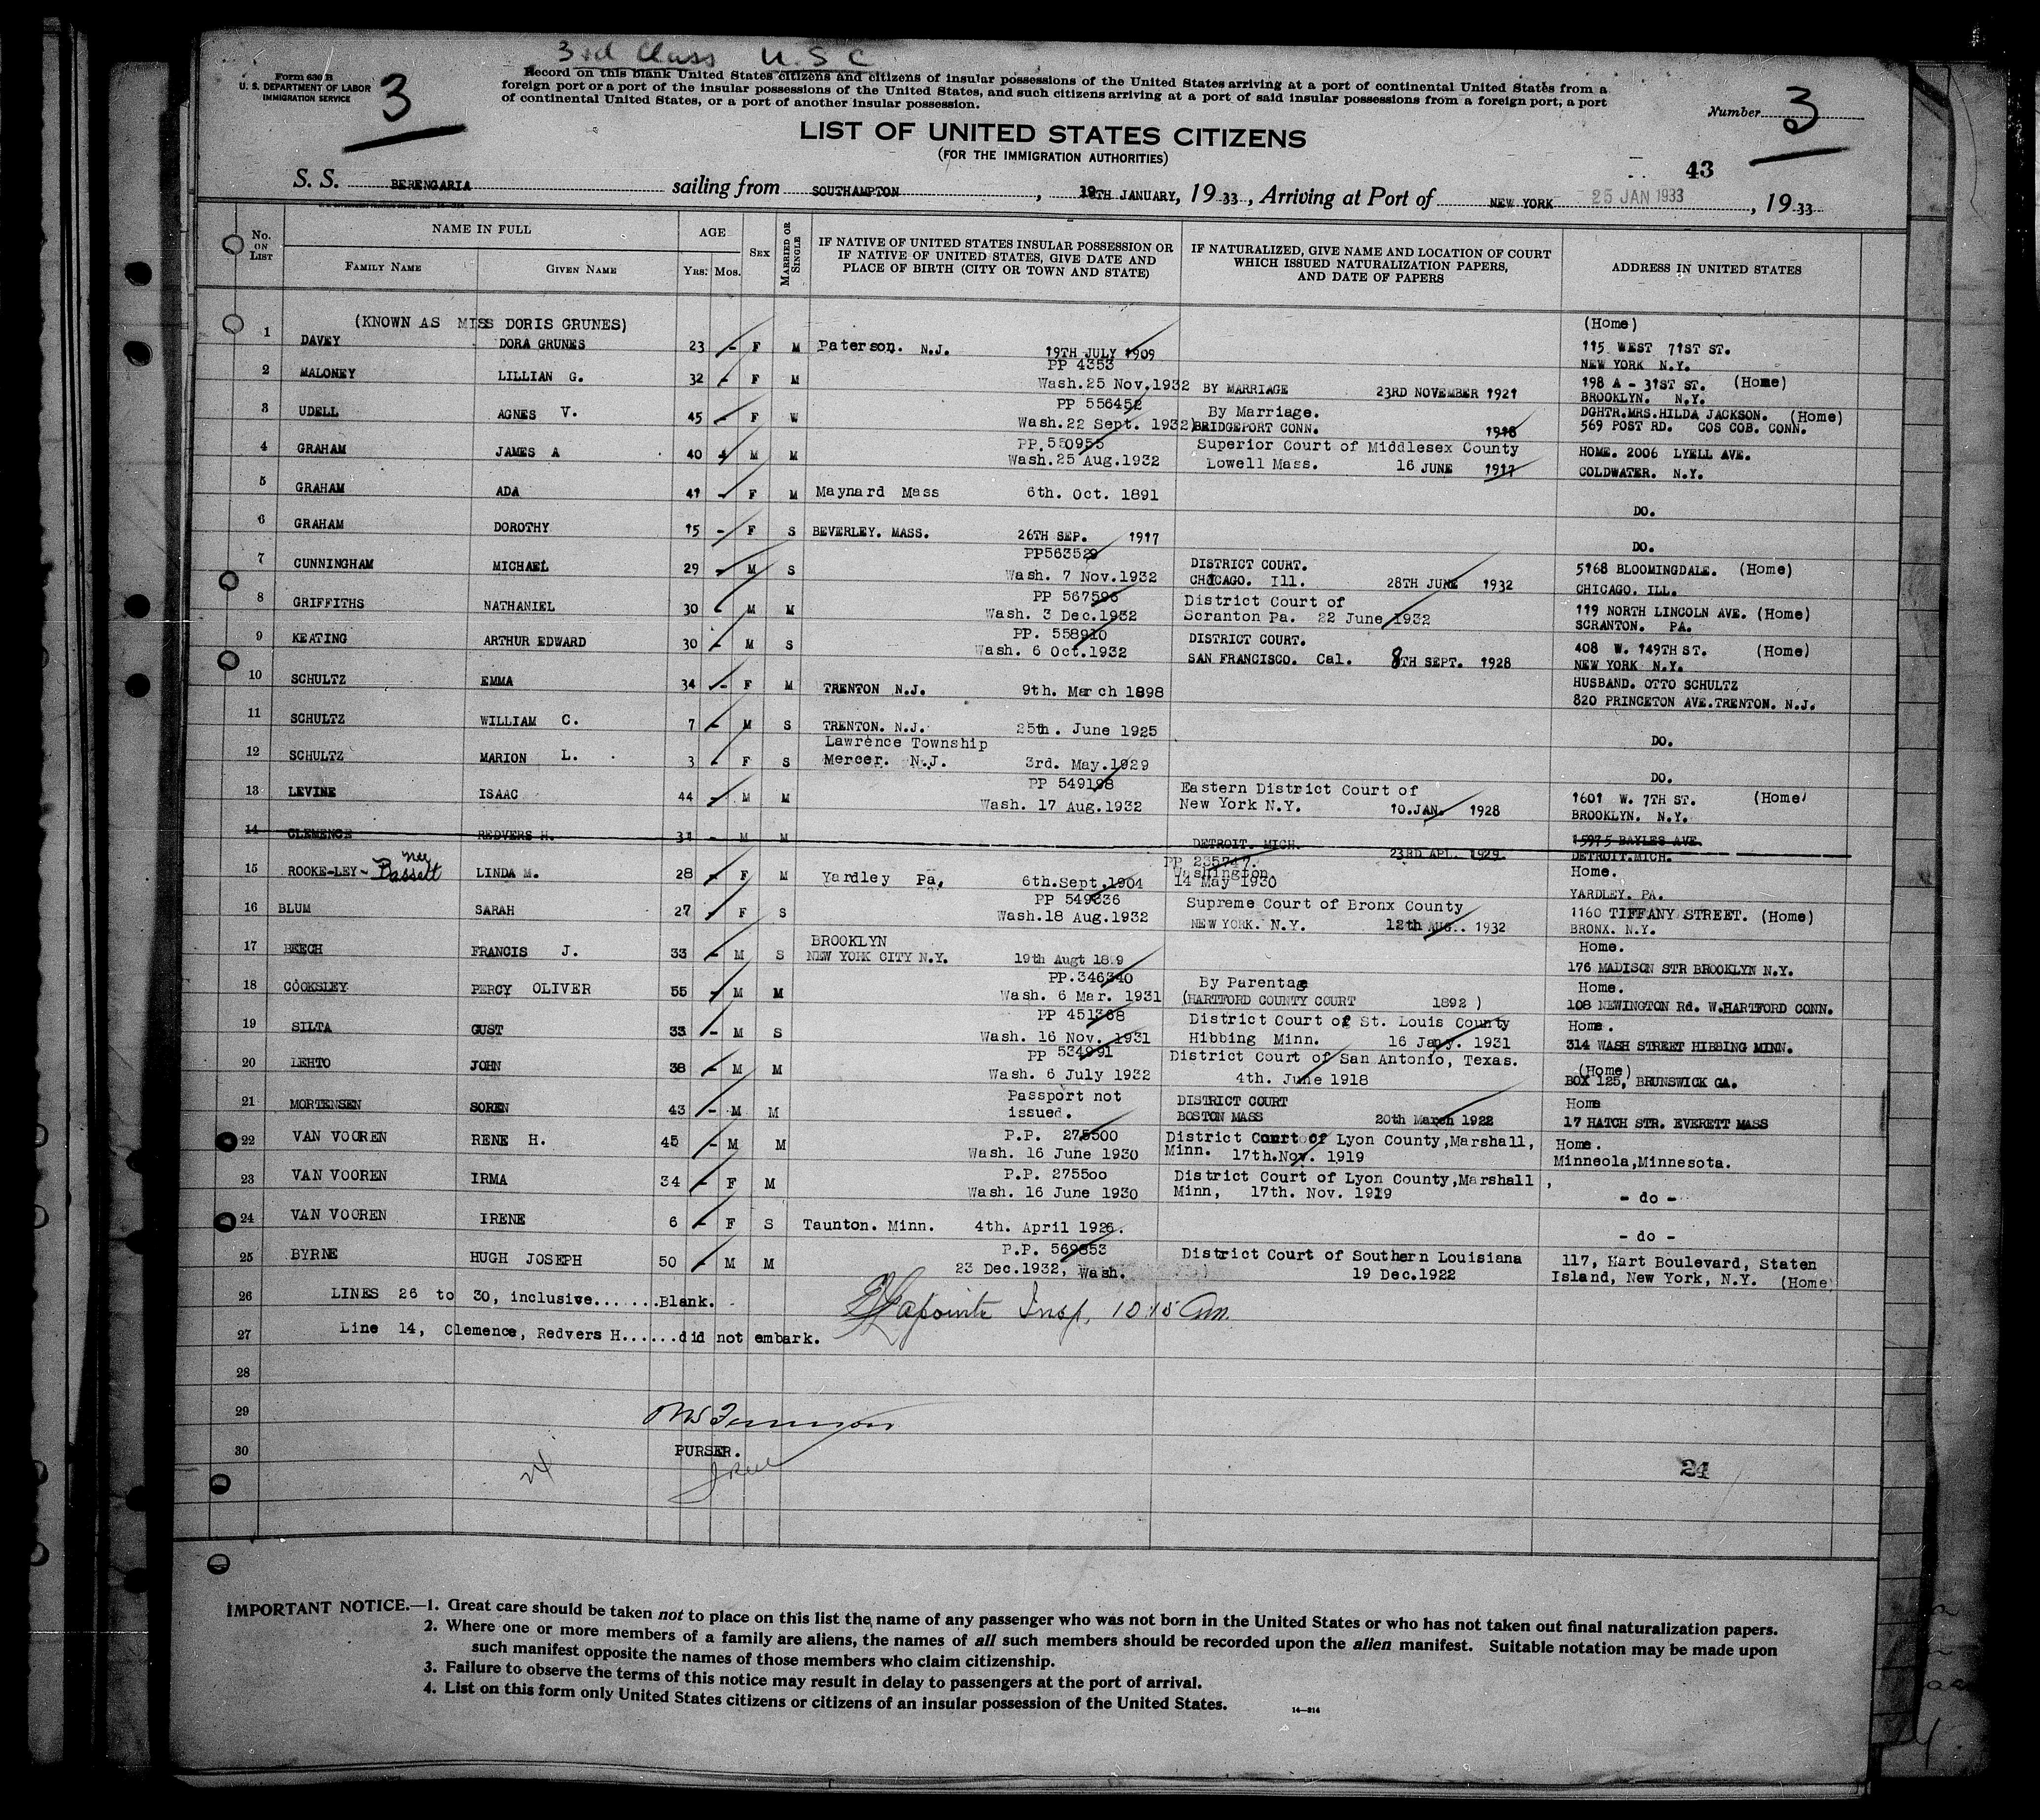 3rd Class U.S.C
Form 630 B
U. S. DEPARTMENT OF LABOR
IMMIGRATION SERVICE
3
Record on this blank United States citizens and citizens of insular possessions of the United States arriving at a port of continental United States from a
foreign port or a port of the insular possessions of the United States, and such citizens arriving at a port of said insular possessions from a foreign port, a port
of continental United States, or a port of another insular possession.
Number 3
LIST OF UNITED STATES CITIZENS
(FOR THE IMMIGRATION AUTHORITIES)
43
S. S. BERENGARIA sailing from SOUTHAMPTON, 19TH JANUARY, 1933, Arriving at Port of NEW YORK 25 JAN 1933, 1933
No. ON LIST
NAME IN FULL
FAMILY NAME
GIVEN NAME
AGE
YRS. MOS.
SEX
MARRIED OR SINGLE
IF NATIVE OF UNITED STATES INSULAR POSSESSION OR
IF NATIVE OF UNITED STATES, GIVE DATE AND
PLACE OF BIRTH (CITY OR TOWN AND STATE)
IF NATURALIZED, GIVE NAME AND LOCATION OF COURT
WHICH ISSUED NATURALIZATION PAPERS,
AND DATE OF PAPERS
ADDRESS IN UNITED STATES
(KNOWN AS MISS DORIS GRUNES) (Home)
1 DAVEY DORA GRUNES 23 - F M Paterson. N.J. 19TH JULY 1909 115 WEST 71ST ST.
NEW YORK N.Y.
2 MALONEY LILLIAN G. 32 - F M PP 4353
Wash.25 Nov.1932 BY MARRIAGE 23RD NOVEMBER 1921 198 A - 31ST ST. (Home)
BROOKLYN. N.Y.
3 UDELL AGNES V. 45 - F W PP 556452 By Marriage. DGHTR.MRS.HILDA JACKSON. (Home)
Wash.22 Sept. 1932 BRIDGEPORT CONN. 1918 569 POST RD. COS COB. CONN.
4 GRAHAM JAMES A 40 M M PP.550955 Superior Court of Middlesex County HOME. 2006 LYELL AVE.
Wash.25 Aug.1932 Lowell Mass. 16 JUNE 1917 COLDWATER. N.Y.
5 GRAHAM ADA 41 - F M Maynard Mass 6th. Oct. 1891 DO.
6 GRAHAM DOROTHY 15 - F S BEVERLEY. MASS. 26TH SEP. 1917 DO.
7 CUNNINGHAM MICHAEL 29 - M S PP563529 DISTRICT COURT. 5168 BLOOMINGDALE. (Home)
Wash. 7 Nov.1932 CHICAGO. Ill. 28TH JUNE 1932 CHICAGO. ILL.
8 GRIFFITHS NATHANIEL 30 - M M PP 567596 District Court of 119 NORTH LINCOLN AVE. (Home)
Wash. 3 Dec.1932 Scranton Pa. 22 June 1932 SCRANTON. PA.
9 KEATING ARTHUR EDWARD 30 - M S PP. 558910 DISTRICT COURT. 408 W. 149TH ST. (Home)
Wash. 6 Oct.1932 SAN FRANCISCO. Cal. 8TH SEPT. 1928 NEW YORK N.Y.
10 SCHULTZ EMMA 34 - F M TRENTON N.J. 9th. March 1898 HUSBAND. OTTO SCHULTZ
820 PRINCETON AVE.TRENTON. N.J.
11 SCHULTZ WILLIAM C. 7 - M S TRENTON. N.J. 25th. June 1925 DO.
12 SCHULTZ MARION L. 3 - F S Lawrence Township
Mercer. N.J. 3rd. May.1929 DO.
13 LEVINE ISAAC 44 - M M PP 549198 Eastern District Court of 1601 W. 7TH ST. (Home)
Wash. 17 Aug.1932 New York N.Y. 10.JAN. 1928 BROOKLYN. N.Y.
14 CLEMENCE REDVERS H. 31 - M M DETROIT. MICH. 23RD APL. 1929. 15975 BAYLES AVE.
DETROIT.MICH.
15 ROOKE-LEY- nee Bassett LINDA M. 28 - F M Yardley Pa, 6th.Sept.1904 PP 235747. Washington. 14 May 1930 Home.
YARDLEY. PA.
16 BLUM SARAH 27 - F S PP 549336 Supreme Court of Bronx County 1160 TIFFANY STREET. (Home)
Wash.18 Aug.1932 NEW YORK. N.Y. 12th AUG.. 1932 BRONX. N.Y.
17 BEECH FRANCIS J. 33 - M S BROOKLYN Home.
NEW YORK CITY N.Y. 19th Augt 1899 176 MADISON STR BROOKLYN N.Y.
18 COOKSLEY PERCY OLIVER 55 - M M PP.346340 By Parentage Home.
Wash. 6 Mar. 1931 (HARTFORD COUNTY COURT 1892 ) 108 NEWINGTON Rd. W.HARTFORD CONN.
19 SILTA GUST 33 - M S PP 451368 District Court of St. Louis County Home.
Wash. 16 Nov. 1931 Hibbing Minn. 16 Jany. 1931 314 WASH STREET HIBBING MINN.
20 LEHTO JOHN 38 - M M PP 534991 District Court of San Antonio, Texas. (Home)
Wash. 6 July 1932 4th. June 1918 BOX 125, BRUNSWICK GA.
21 MORTENSEN SOREN 43 - M M Passport not DISTRICT COURT Home
issued. BOSTON MASS 20th March 1922 17 HATCH STR. EVERETT MASS
22 VAN VOOREN RENE H. 45 - M M P.P. 275500 District Court of Lyon County,Marshall, Home.
Wash. 16 June 1930 Minn. 17th.Nov. 1919 Minneola,Minnesota.
23 VAN VOOREN IRMA 34 - F M P.P. 275500 District Court of Lyon County,Marshall ,
Wash. 16 June 1930 Minn, 17th. Nov. 1919 - do -
24 VAN VOOREN IRENE 6 - F S Taunton. Minn. 4th. April 1926. - do -
25 BYRNE HUGH JOSEPH 50 - M M P.P. 569853 District Court of Southern Louisiana 117, Hart Boulevard, Staten
23 Dec.1932, Wash. 19 Dec.1922 Island, New York, N.Y. (Home)
26 LINES 26 to 30, inclusive.......Blank. Lapointe Insp. 10:15 Am.
27 Line 14, Clemence, Redvers H......did not embark.
28
29
30 PURSER.
24 24
IMPORTANT NOTICE.—1. Great care should be taken not to place on this list the name of any passenger who was not born in the United States or who has not taken out final naturalization papers.
2. Where one or more members of a family are aliens, the names of all such members should be recorded upon the alien manifest. Suitable notation may be made upon
such manifest opposite the names of those members who claim citizenship.
3. Failure to observe the terms of this notice may result in delay to passengers at the port of arrival.
4. List on this form only United States citizens or citizens of an insular possession of the United States.
14—214